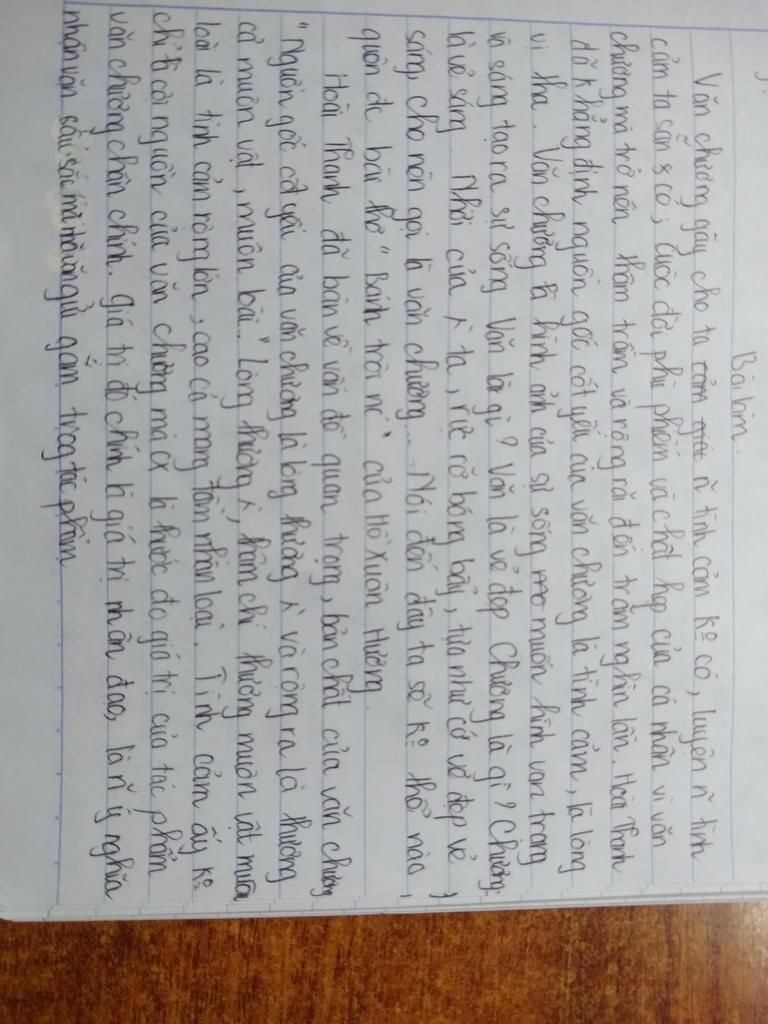 Bài làm.
Văn chương gây cho ta ñ tình cảm ko có, luyện ñ tình
cảm ta sẵn có; cuộc đời phù phiếm và chật hẹp của cá nhân vì văn
chương mà trở nên thâm trầm và rộng rãi đến trăm nghìn lần. Hoài Thanh
đã khẳng định nguồn gốc cốt yếu của văn chương là tình cảm, là lòng
vị tha. Văn chương là hình ảnh của sự sống muôn hình vạn trạng
và sáng tạo ra sự sống. Văn là gì? Văn là vẻ đẹp. Chương là gì? Chương
là vẻ sáng. Nhời của ta, rực rỡ bóng bẩy, tựa như có vẻ đẹp vẻ
sáng, cho nên gọi là văn chương... Nói đến đây ta sẽ ko thể nào
quên đc bài thơ "Bánh trôi nc" của Hồ Xuân Hương.
Hoài Thanh đã bàn về vấn đề quan trọng, bản chất của văn chương
"Nguồn gốc cốt yếu của văn chương là lòng thương và rộng ra là thương
cả muôn vật, muôn loài." Lòng thương, thậm chí thương muôn vật muôn
loài là tình cảm rộng lớn, cao cả mang tầm nhân loại. Tình cảm ấy ko
chỉ là cội nguồn của văn chương mà là thước đo giá trị của tác phẩm
văn chương chân chính. giá trị đó chính là giá trị nhân đạo, là ñ ý nghĩa
nhân văn sâu sắc mà nhà văn gửi gắm trog tác phẩm